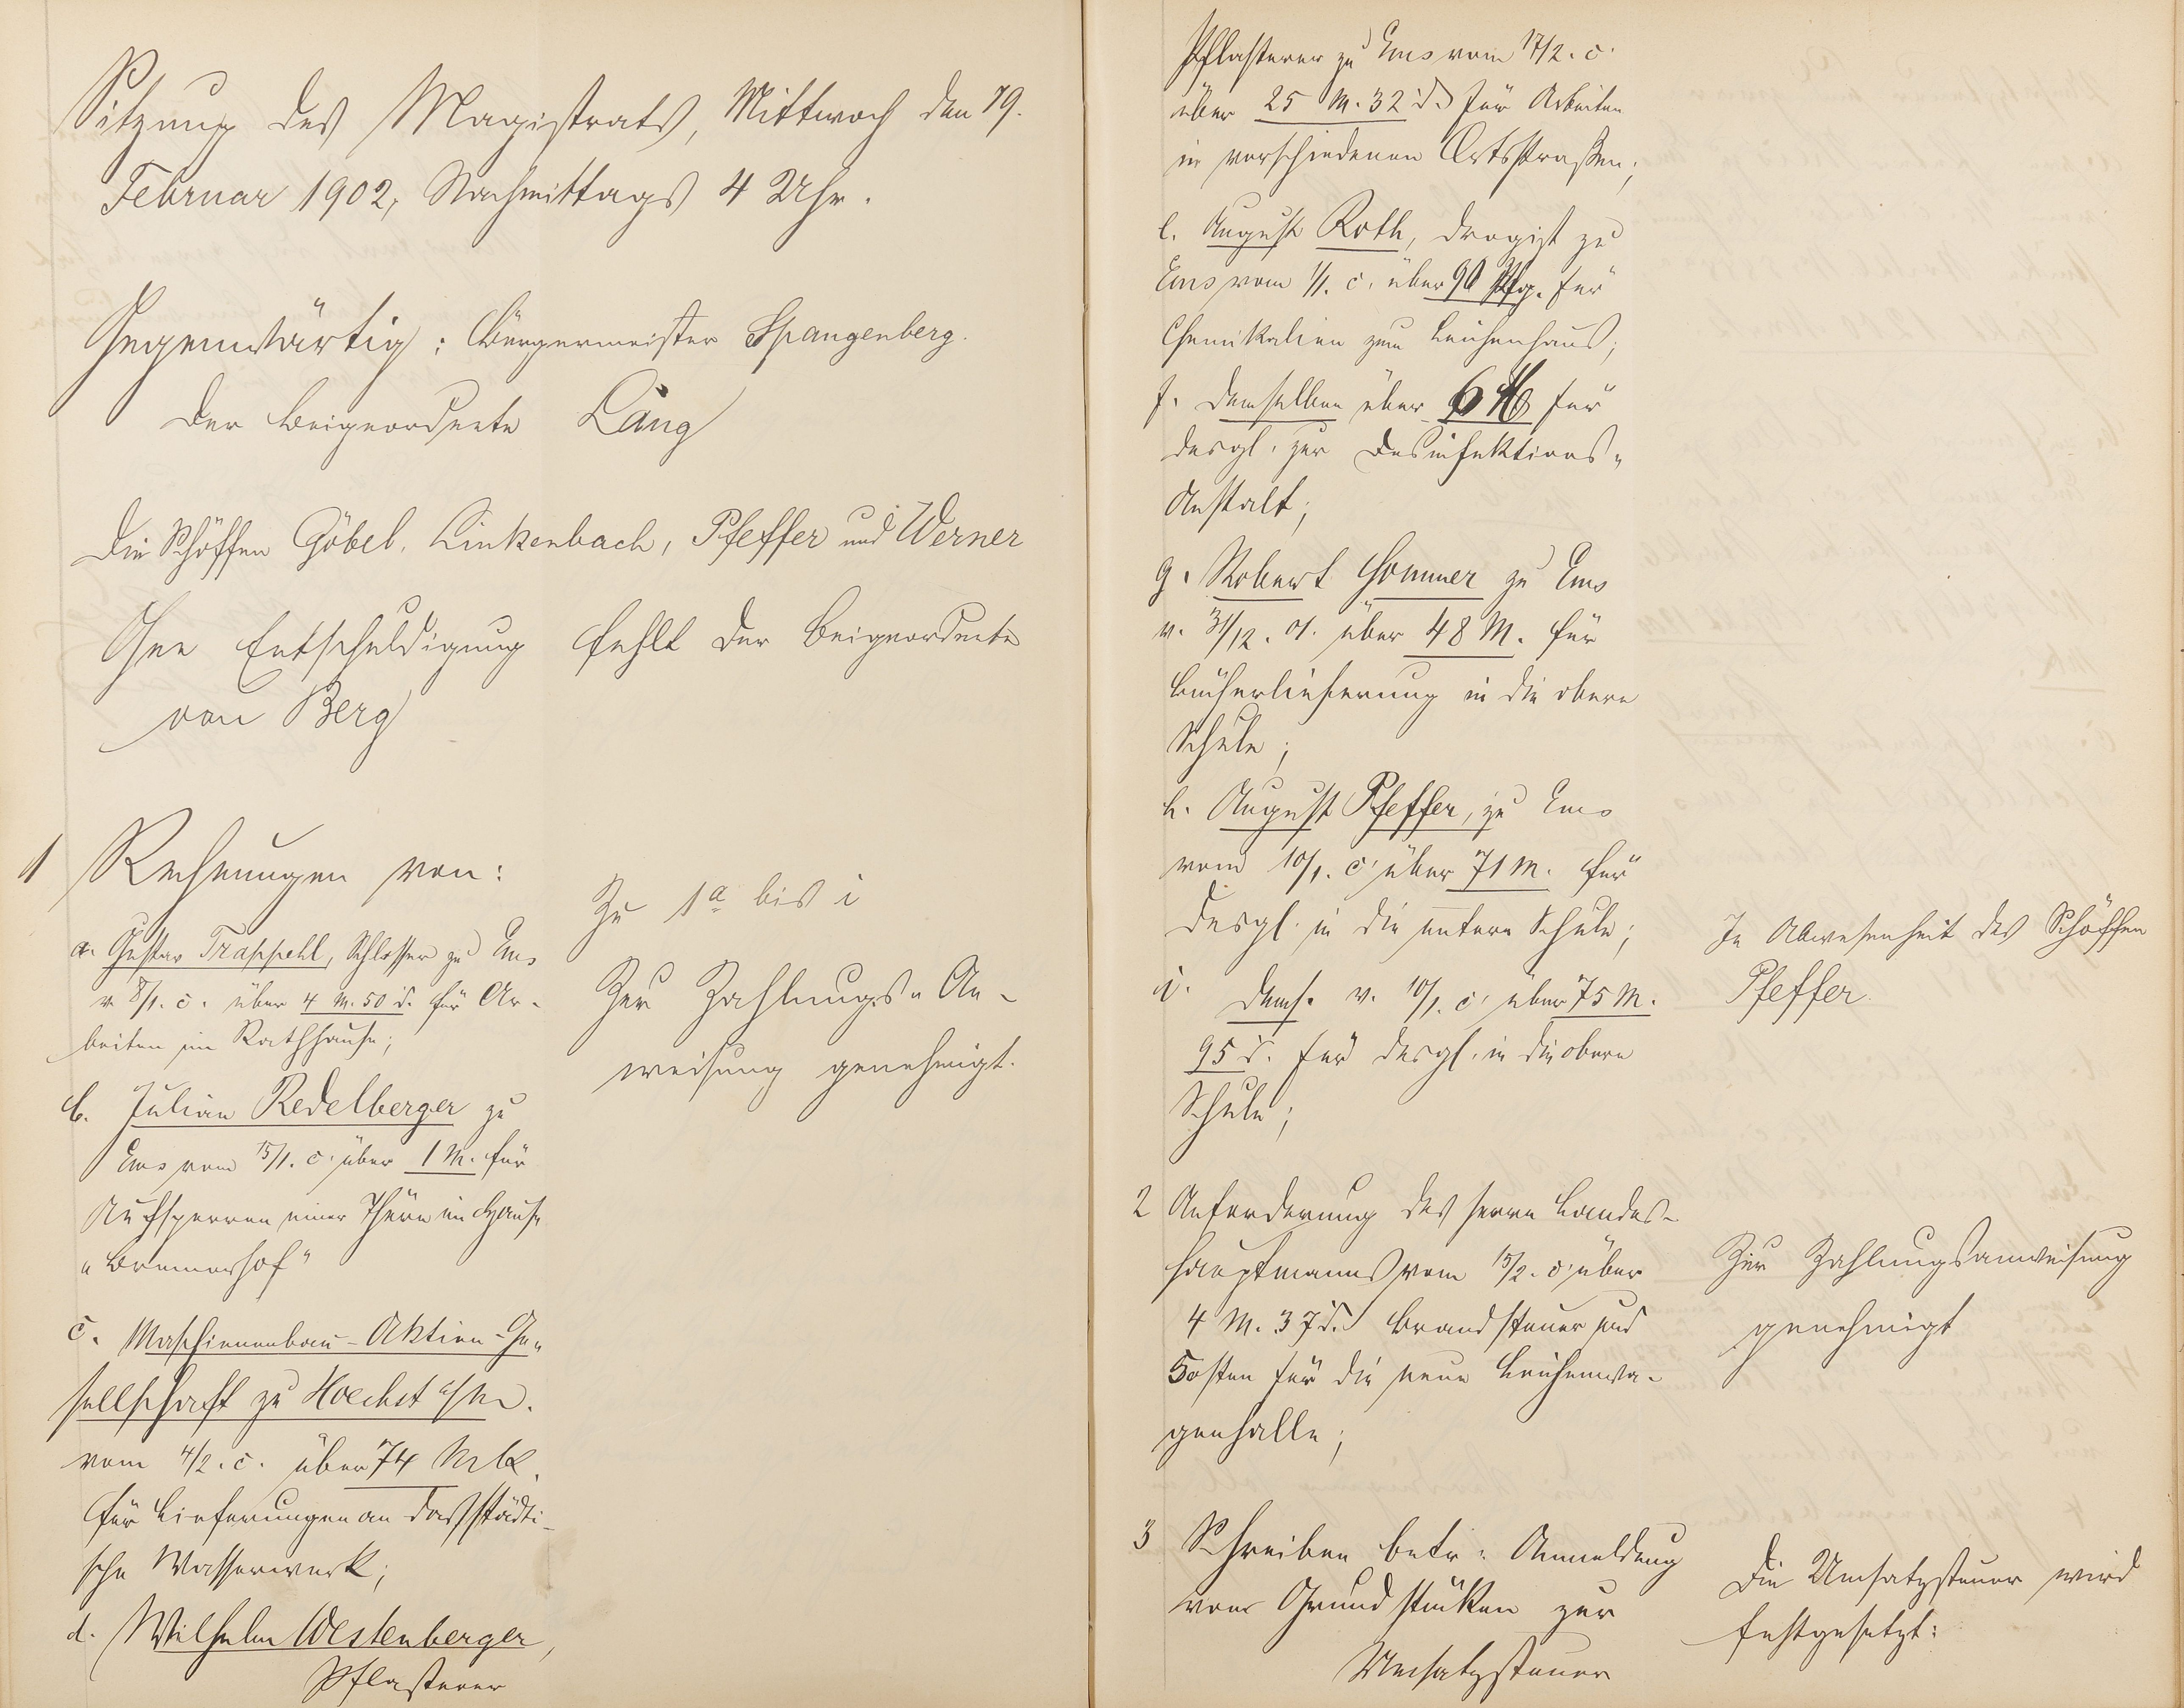 Sitzung des Magistrats, Mittwoch den 19.
Februar 1902, Nachmittags 4 Uhr.
Gegenwärtig: Bürgermeister Spangenberg.
Der Beigeordnete Lang
Die Schöffen Göbel, Linkenbach, Pfeffer und Werner
Ohne Entschuldigung fehlt der Beigeordnete
von Berg
1 Rechnungen von:
a. Gustav Trappehl, Schlosser zu Ems
v. 8/1. c. über 4 M. 50 d. für Ar-
beiten im Rathhause;
b. Julian Redelberger zu
Ems vom 15/1. c. über 1 M. für
Aufsperren einer Thüre im Hause
"Bremerhof"
c. Maschinenbau-Aktien-Ge-
sellschaft zu Hoechst a/M.
vom 4/2. c. über 74 Mk.
für Lieferungen an das städti-
sche Wasserwerk;
d. Wilhelm Westenberger,
Pflasterer
Zu 1a bis i
Zur Zahlungs-An-
weisung genehmigt.
Pflasterer zu Ems vom 17/2. c.
über 25 M. 32 d. für Arbeiten
in verschiedenen Ortsstraßen;
e. August Roth, Drogist zu
Ems vom 1/1. c. über 90 Pfg. für
Chemikalien zum Leichenhaus;
f. Demselben über 6 M für
desgl. zur Desinfektions-
Anstalt;
g. Robert Sommer zu Ems
v. 31/12. 01. über 48 M. für
Bücherlieferung in die obere
Schule;
h. August Pfeffer, zu Ems
vom 10/1. c. über 71 M. für
desgl. in die untere Schule;
i. Dems. v. 10/1. c. über 75 M.
95 d. für desgl. in die obere
Schule;
In Abwesenheit des Schöffen
Pfeffer.
2 Anforderung des Herrn Landes-
hauptmanns vom 15/2. c. über
4 M. 37 d. Brandsteuer und
Kosten für die neue Leichenwa-
genhalle;
Zur Zahlungsanweisung
genehmigt
3 Schreiben betr. Anmeldung
von Grundstücken zur
Umsatzsteuer
Die Umsatzsteuer wird
festgesetzt: